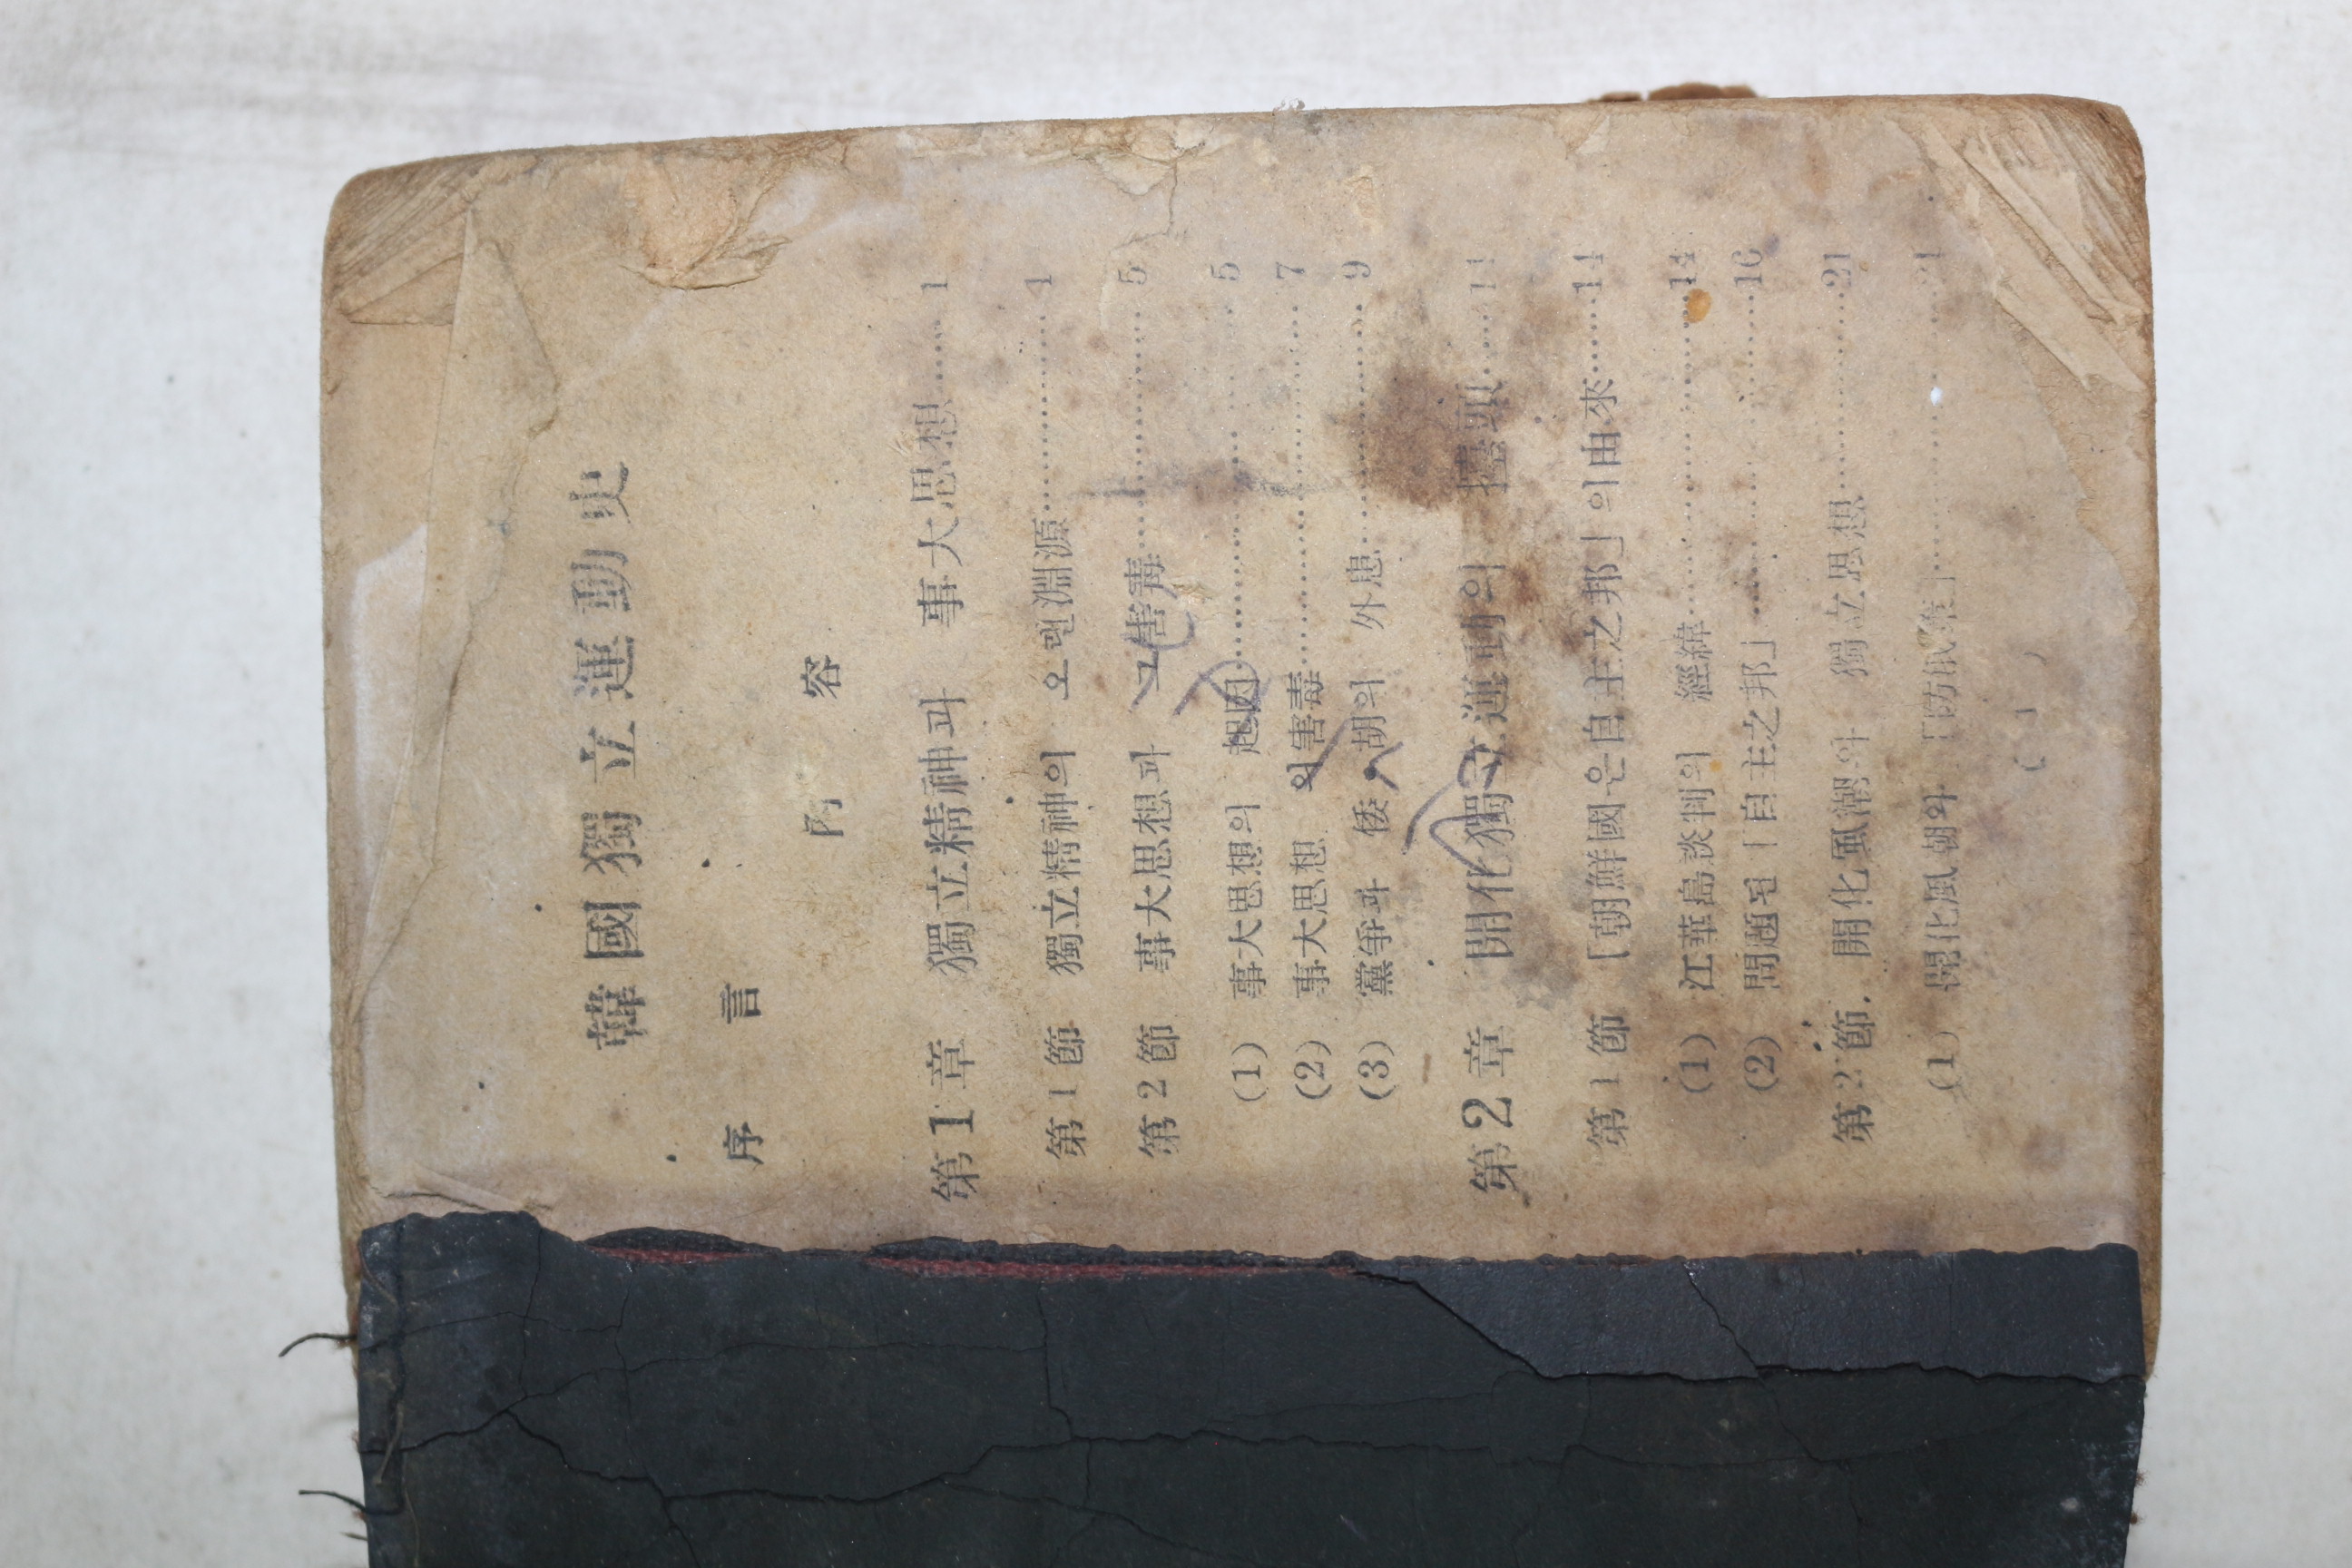 韓國獨立運動史
序言
內容
第1章 獨立精神과 事大思想……1
第1節 獨立精神의 오랜淵源……1
第2節 事大思想과 그害毒……5
(1) 事大思想의 起因……5
(2) 事大思想의害毒……7
(3) 黨爭과 倭胡의 外患……9
第2章 開化獨立運動의 擡頭……14
第1節 「朝鮮國은自主之邦」의由來……14
(1) 江華島談判의 經緯……14
(2) 問題된「自主之邦」……16
第2節 開化風潮와 獨立思想……21
(1) 開化風潮와……21
( 1 )